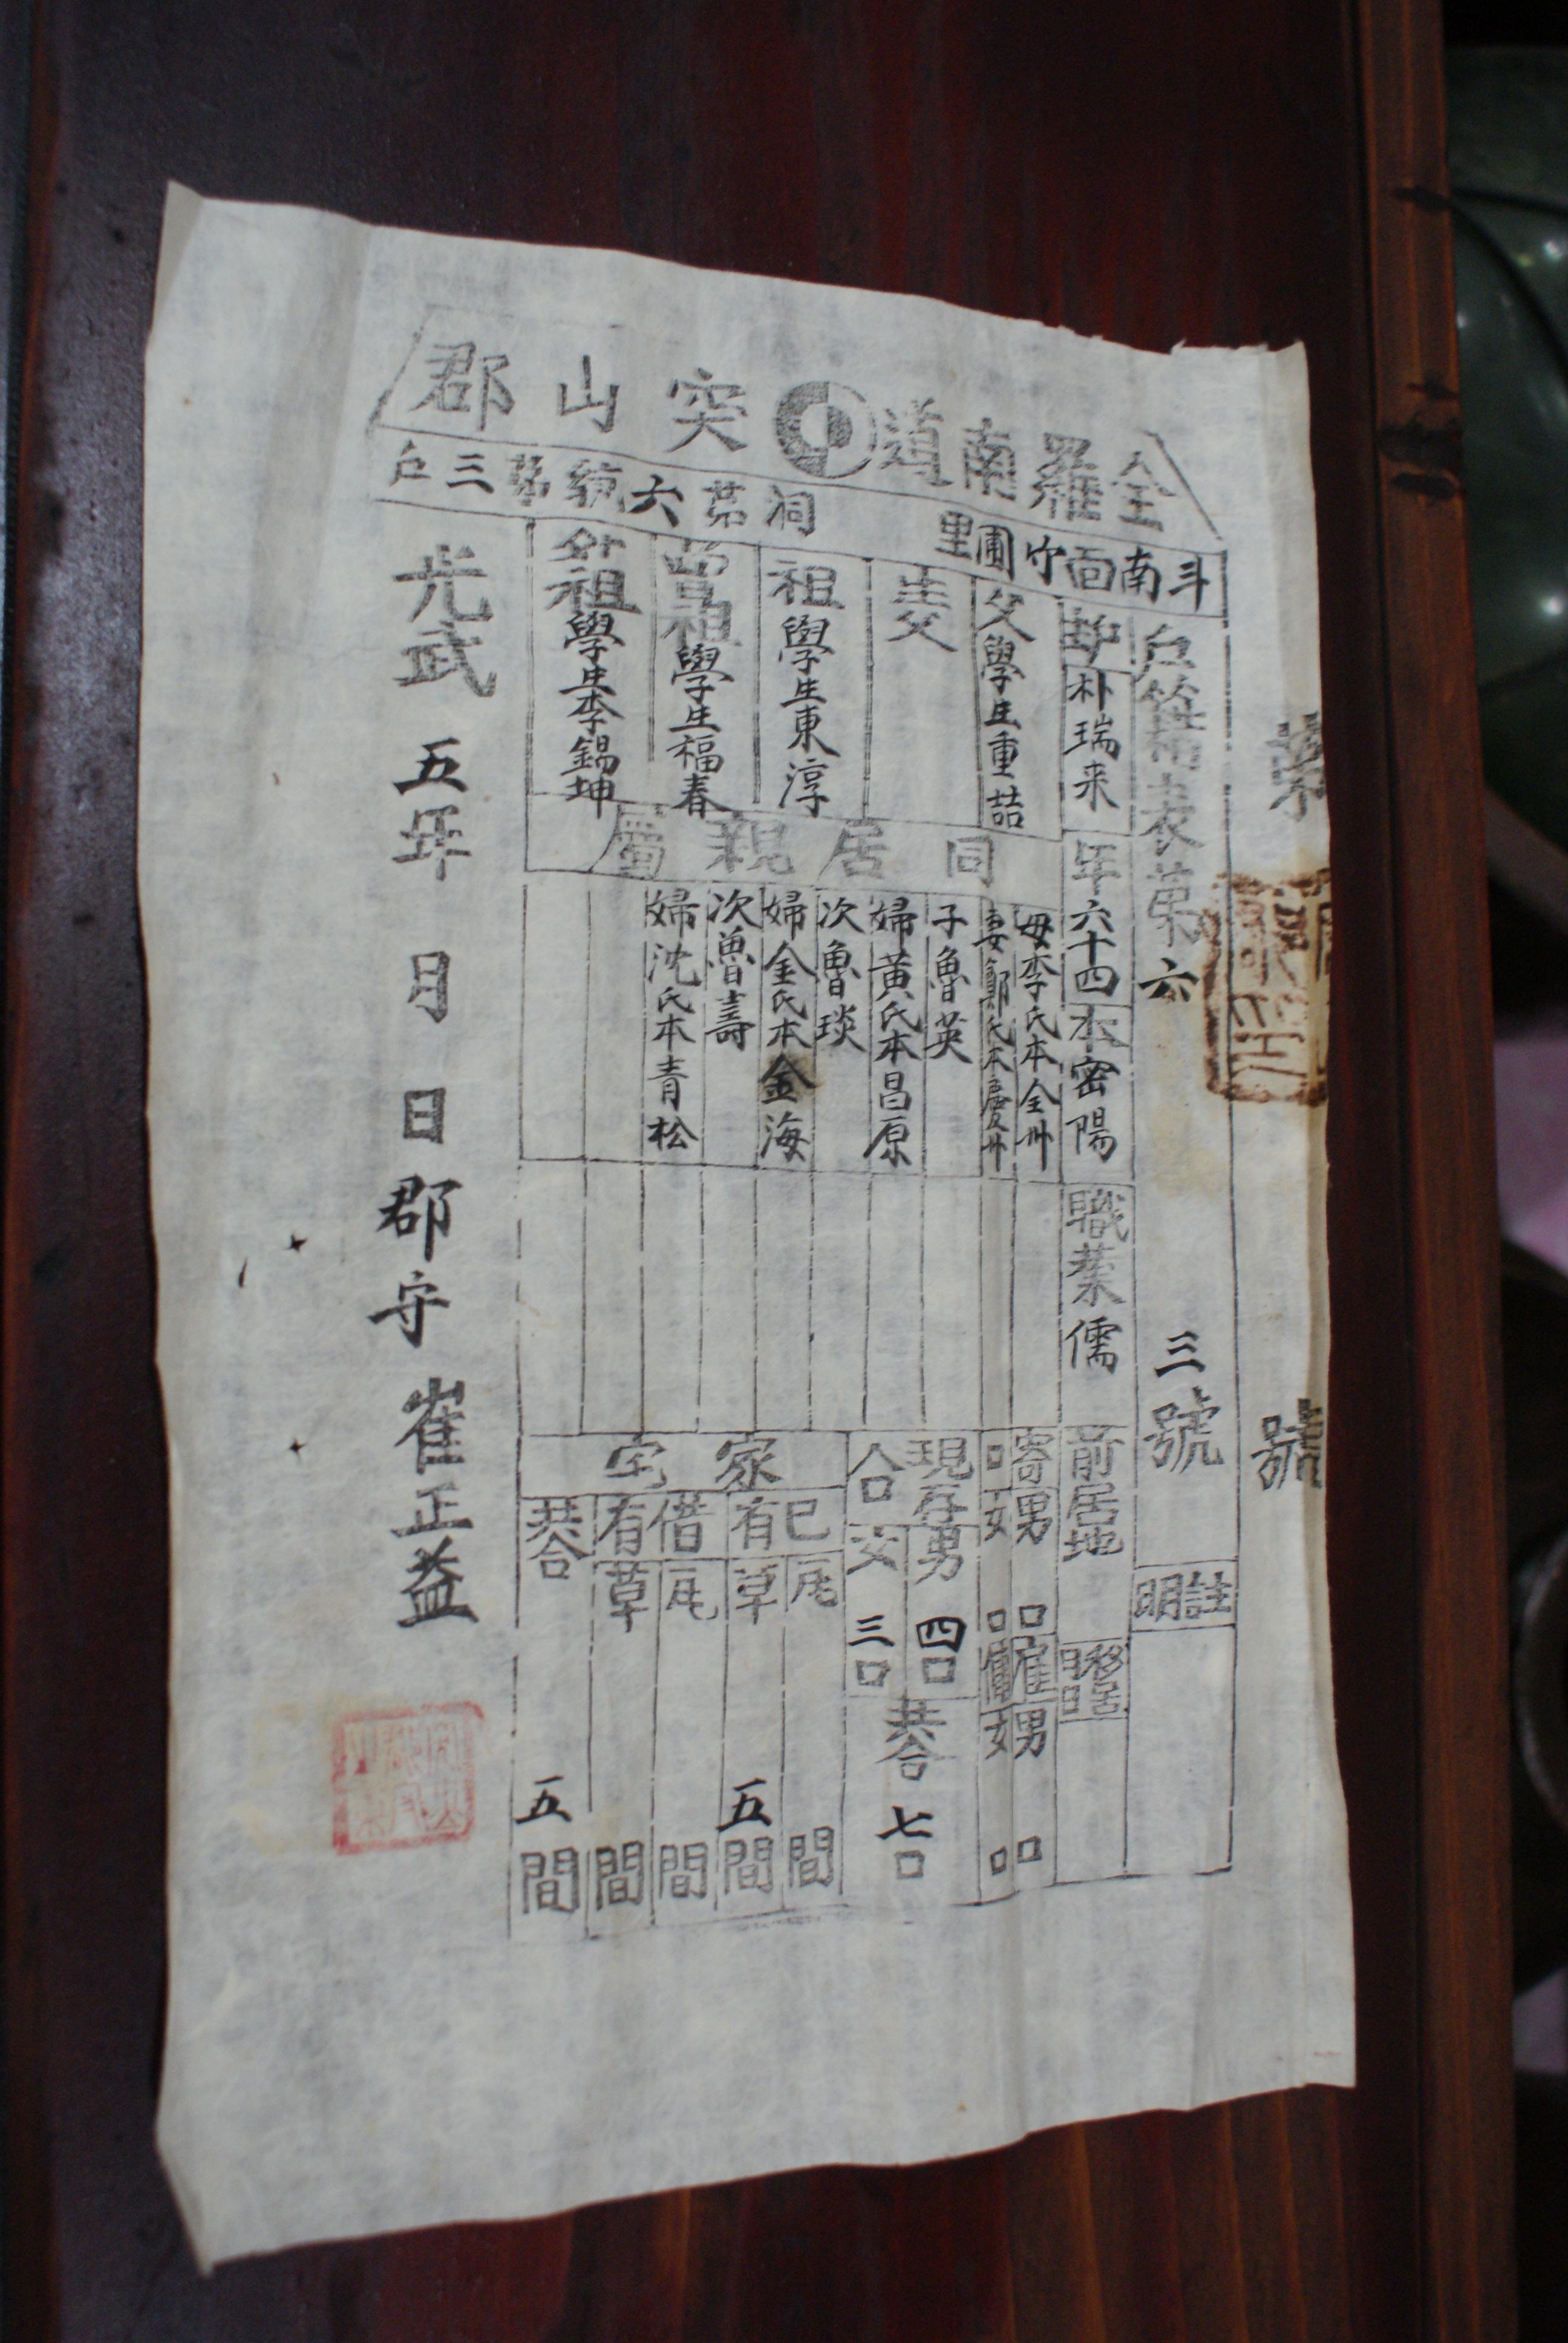 全羅南道突山郡
斗南面竹圃里 洞第六統第三戶
第 號
戶籍表第六 三號
註明
戶主朴瑞來
年六十四
本密陽
職業儒
前居地
移居月日
父學生重喆
生父
祖學生東淳
曾祖學生福春
外祖學生李錫坤
同居親屬
母李氏本全州
妻鄭氏本慶州
子魯英
婦黃氏本昌原
次魯琰
婦金氏本金海
次魯壽
婦沈氏本青松
寄口
男 口
女 口
雇傭
男 口
女 口
現存人口
男四口
女三口
共合七口
家宅
己有
瓦 間
草五間
借有
瓦 間
草 間
共合五間
光武五年 月 日郡守崔正益